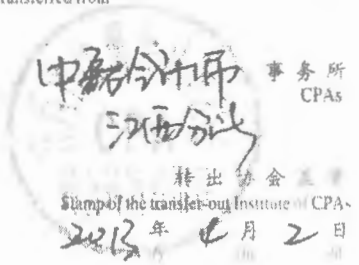 Transferred from
中磊会计师 事务所
CPAs
江西分所
转出协会盖章
Stamp of the transfer-out Institute of CPAs
2013 年 月 2 日